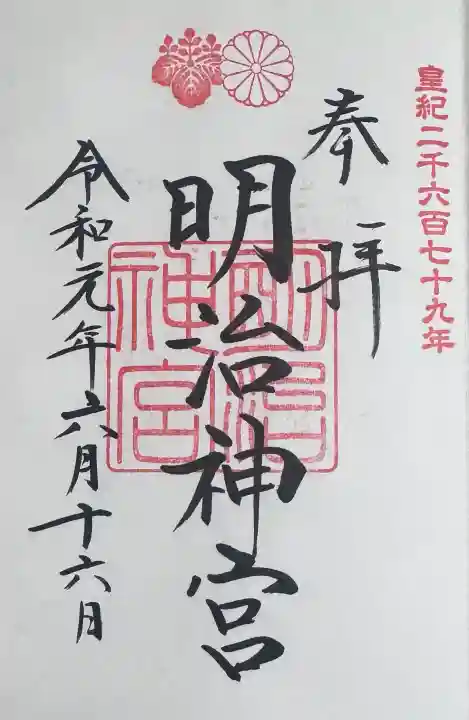 皇紀二千六百七十九年
奉拝
明治神宮
明治神宮
令和元年六月十六日